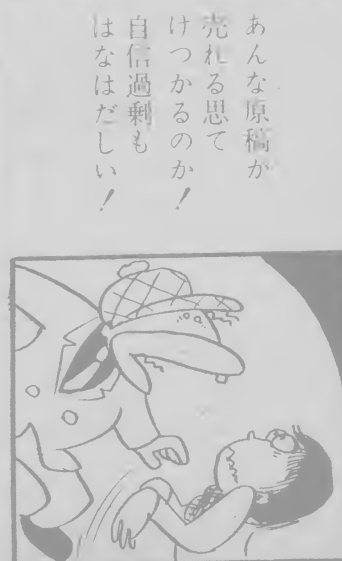 あんな原稿が
売れる思て
けつかるのか！
自信過剰も
はなはだしい！